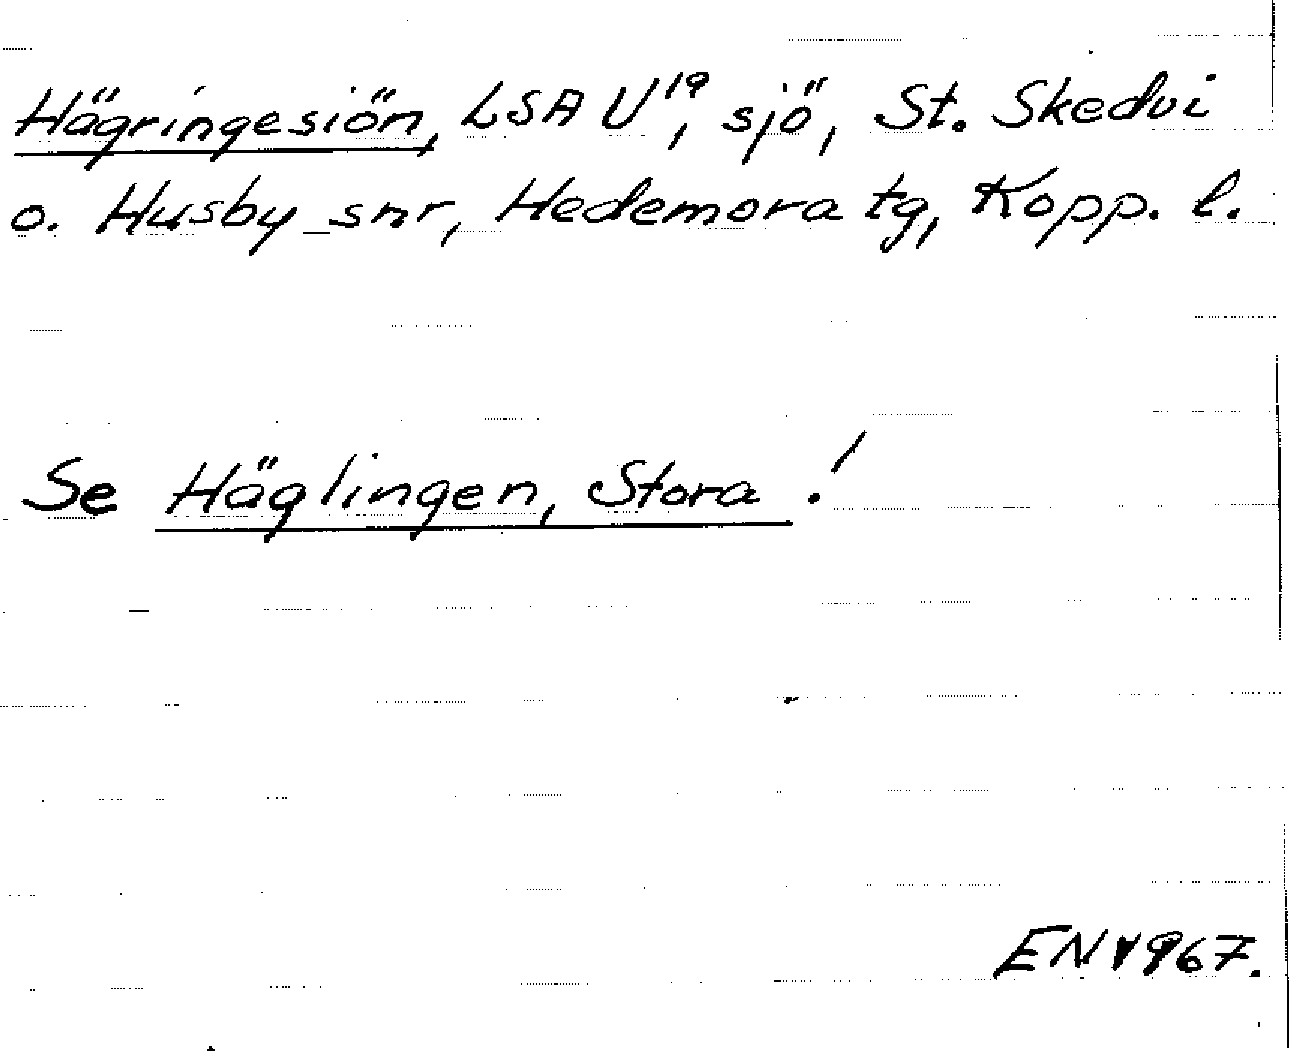 Hägringesiön, LSA U¹⁹, sjö, St. Skedvi
o. Husby snr, Hedemora tg, Kopp. l.
Se Häglingen, Stora!
EN 1967.